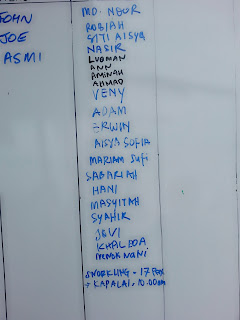 JOHN
JOE
ASMI
MD. NOOR
ROBIAH
SITI AISYA
NASIR
LUQMAN
ANN
AMINAH
AHMAD
VENY
ADAM
ERWIN
AISYA SOFIA
MARIAM SUFI
SABARIAH
HANI
MASYITAH
SYAHIR
JOVI
KHALEDA
NANI
SNORKLING - 17 PAX
→ KAPALAI - 10.00am